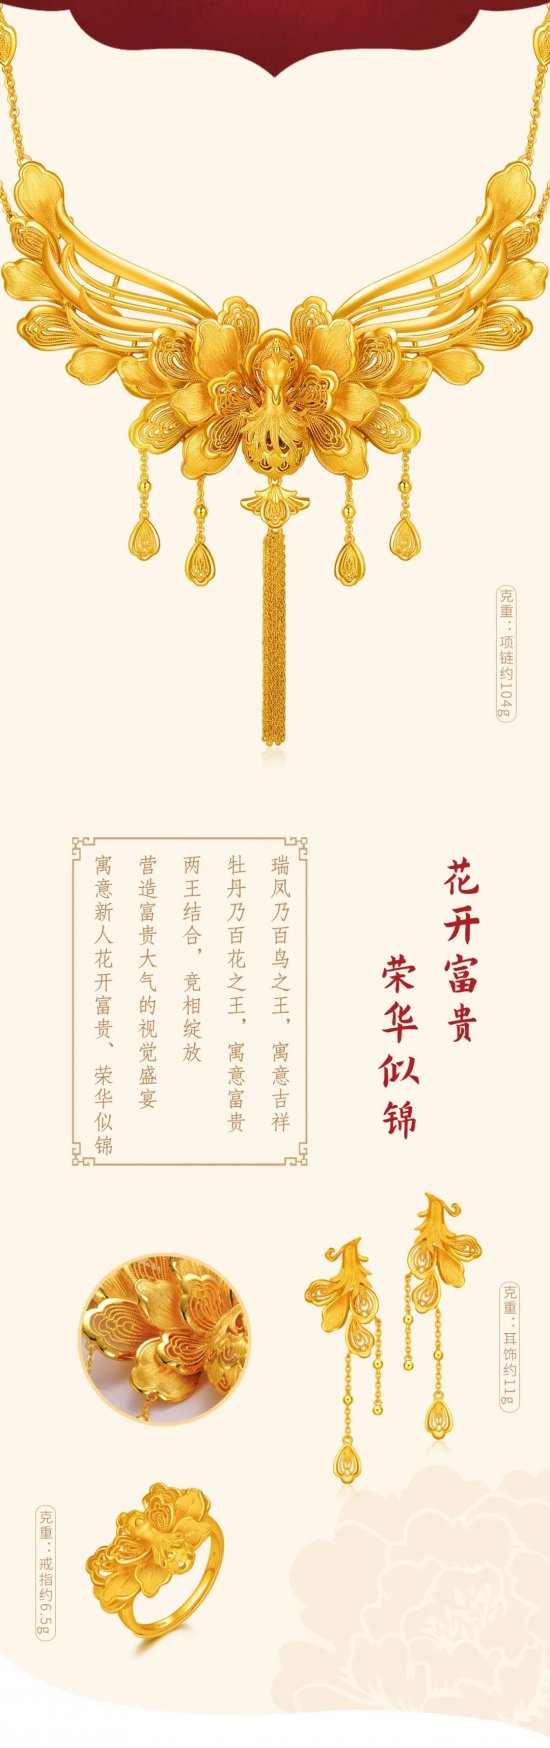 克重：项链约104g
花开富贵
荣华似锦
瑞凤乃百鸟之王，寓意吉祥
牡丹乃百花之王，寓意富贵
两王结合，竞相绽放
营造富贵大气的视觉盛宴
寓意新人花开富贵、荣华似锦
克重：耳饰约11g
克重：戒指约6.5g